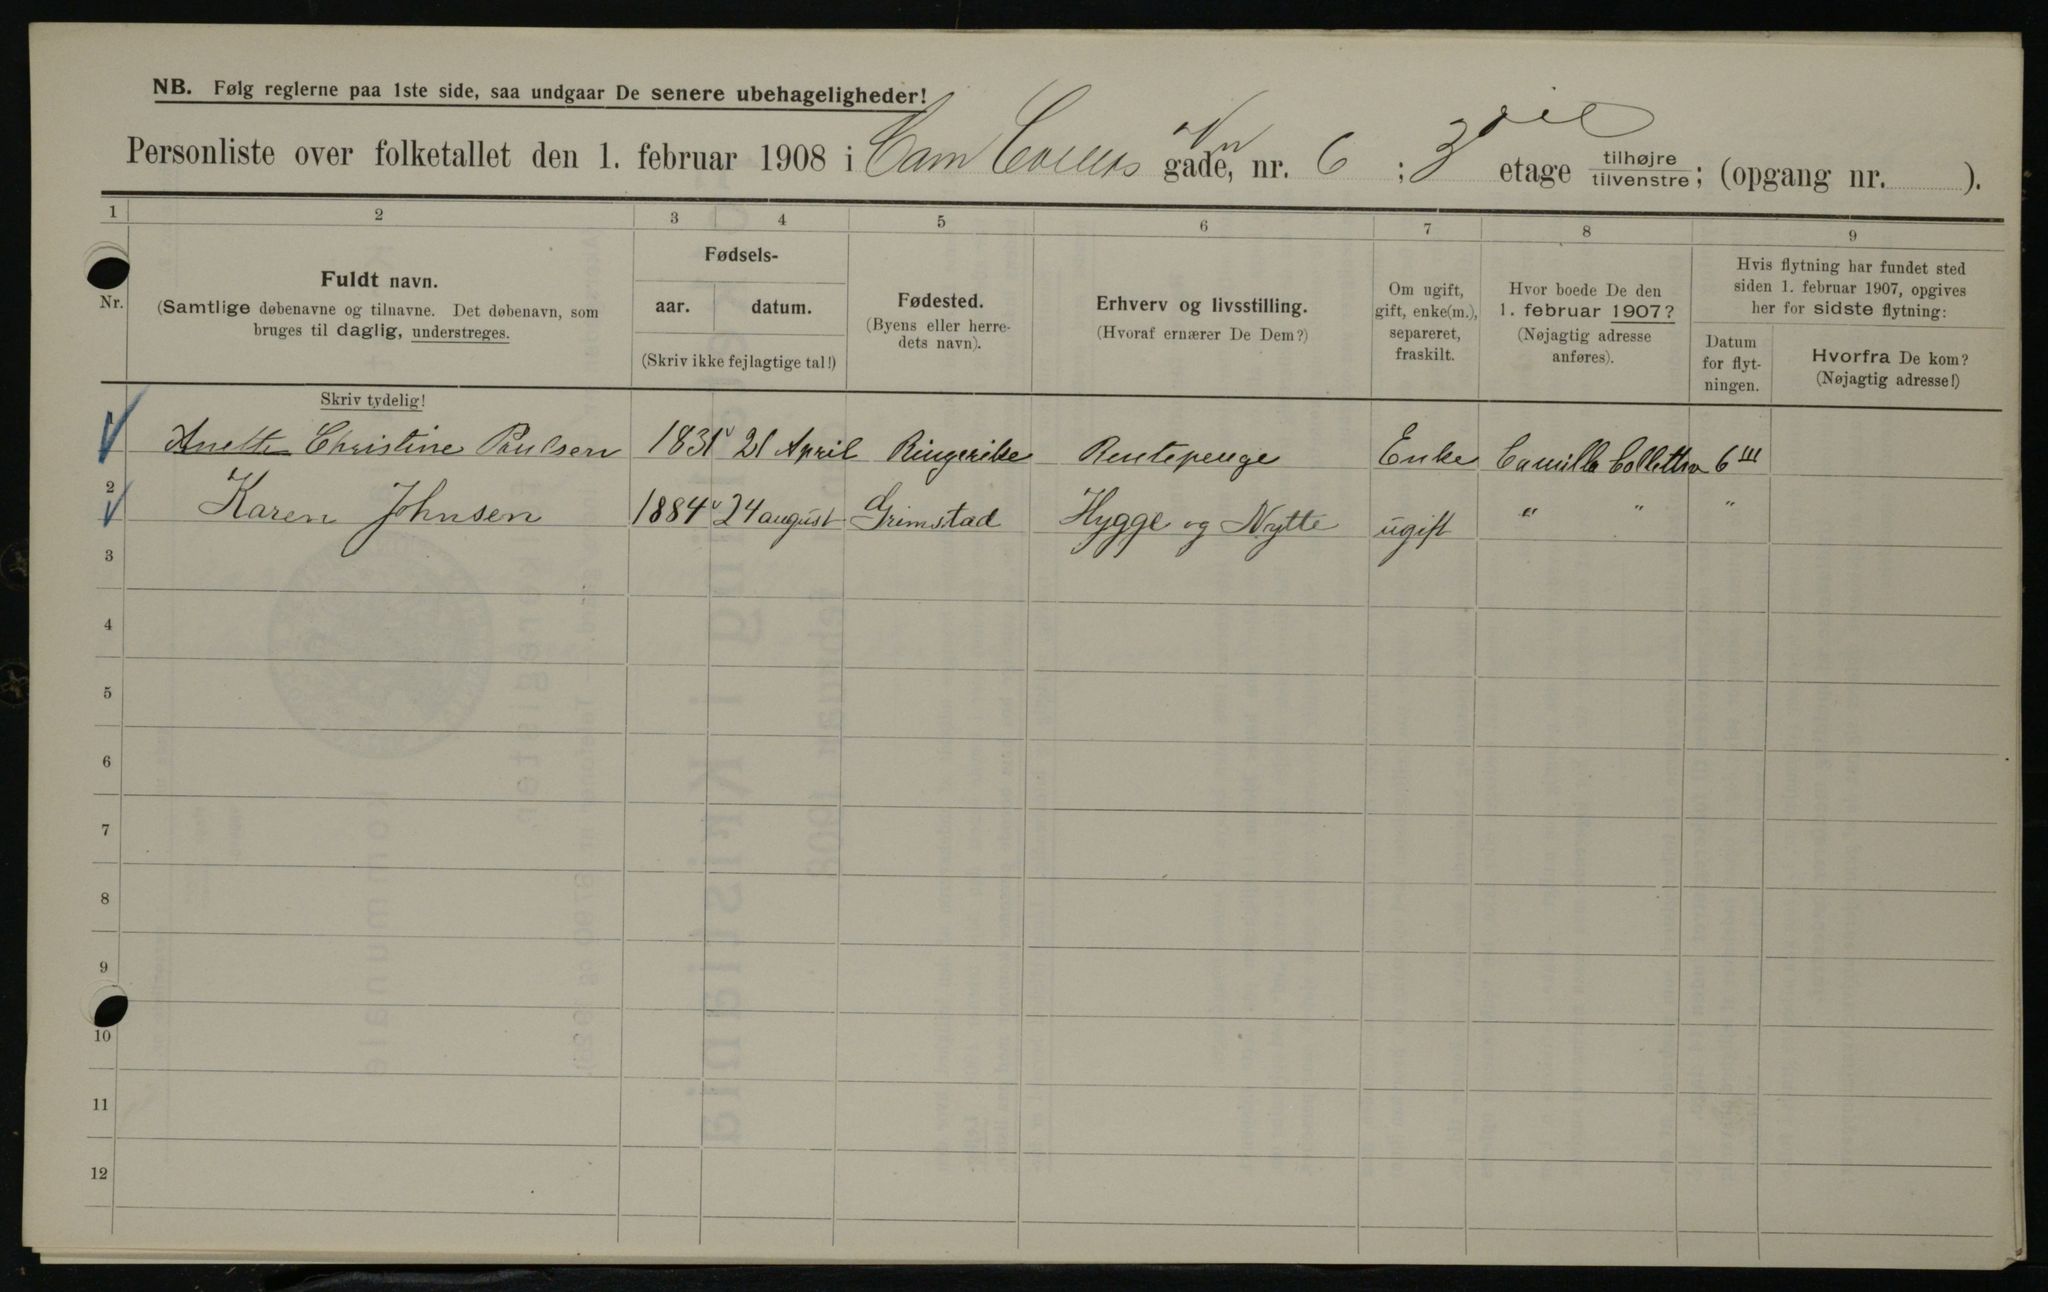 NB. Følg reglerne paa 1ste side, saa undgaar De senere ubehageligheder!
Personliste over folketallet den 1. februar 1908 i Cam Colletts Vn gade, nr. 6 ; 3 etage tilhøjre tilvenstre; (opgang nr. ).
1 2 3 4 5 6 7 8 9
Nr.
Fuldt navn.
(Samtlige døbenavne og tilnavne. Det døbenavn, som
bruges til daglig, understreges.
Skriv tydelig!
Fødsels-
aar. datum.
(Skriv ikke fejlagtige tal!)
Fødested.
(Byens eller herre-
dets navn).
Erhverv og livsstilling.
(Hvoraf ernærer De Dem?)
Om ugift,
gift, enke(m.),
separeret,
fraskilt.
Hvor boede De den
1. februar 1907?
(Nøjagtig adresse
anføres).
Hvis flytning har fundet sted
siden 1. februar 1907, opgives
her for sidste flytning:
Datum
for flyt-
ningen.
Hvorfra De kom?
(Nøjagtig adresse!)
Anette Christine Paulsen 1831 21 April Ringerike Rentepenge Enke Camilla Collettsv 6 III
2 Karen Johnsen 1884 24 august Grimstad Hygge og Nytte ugift " " "
3
4
5
6
7
8
9
10
11
12